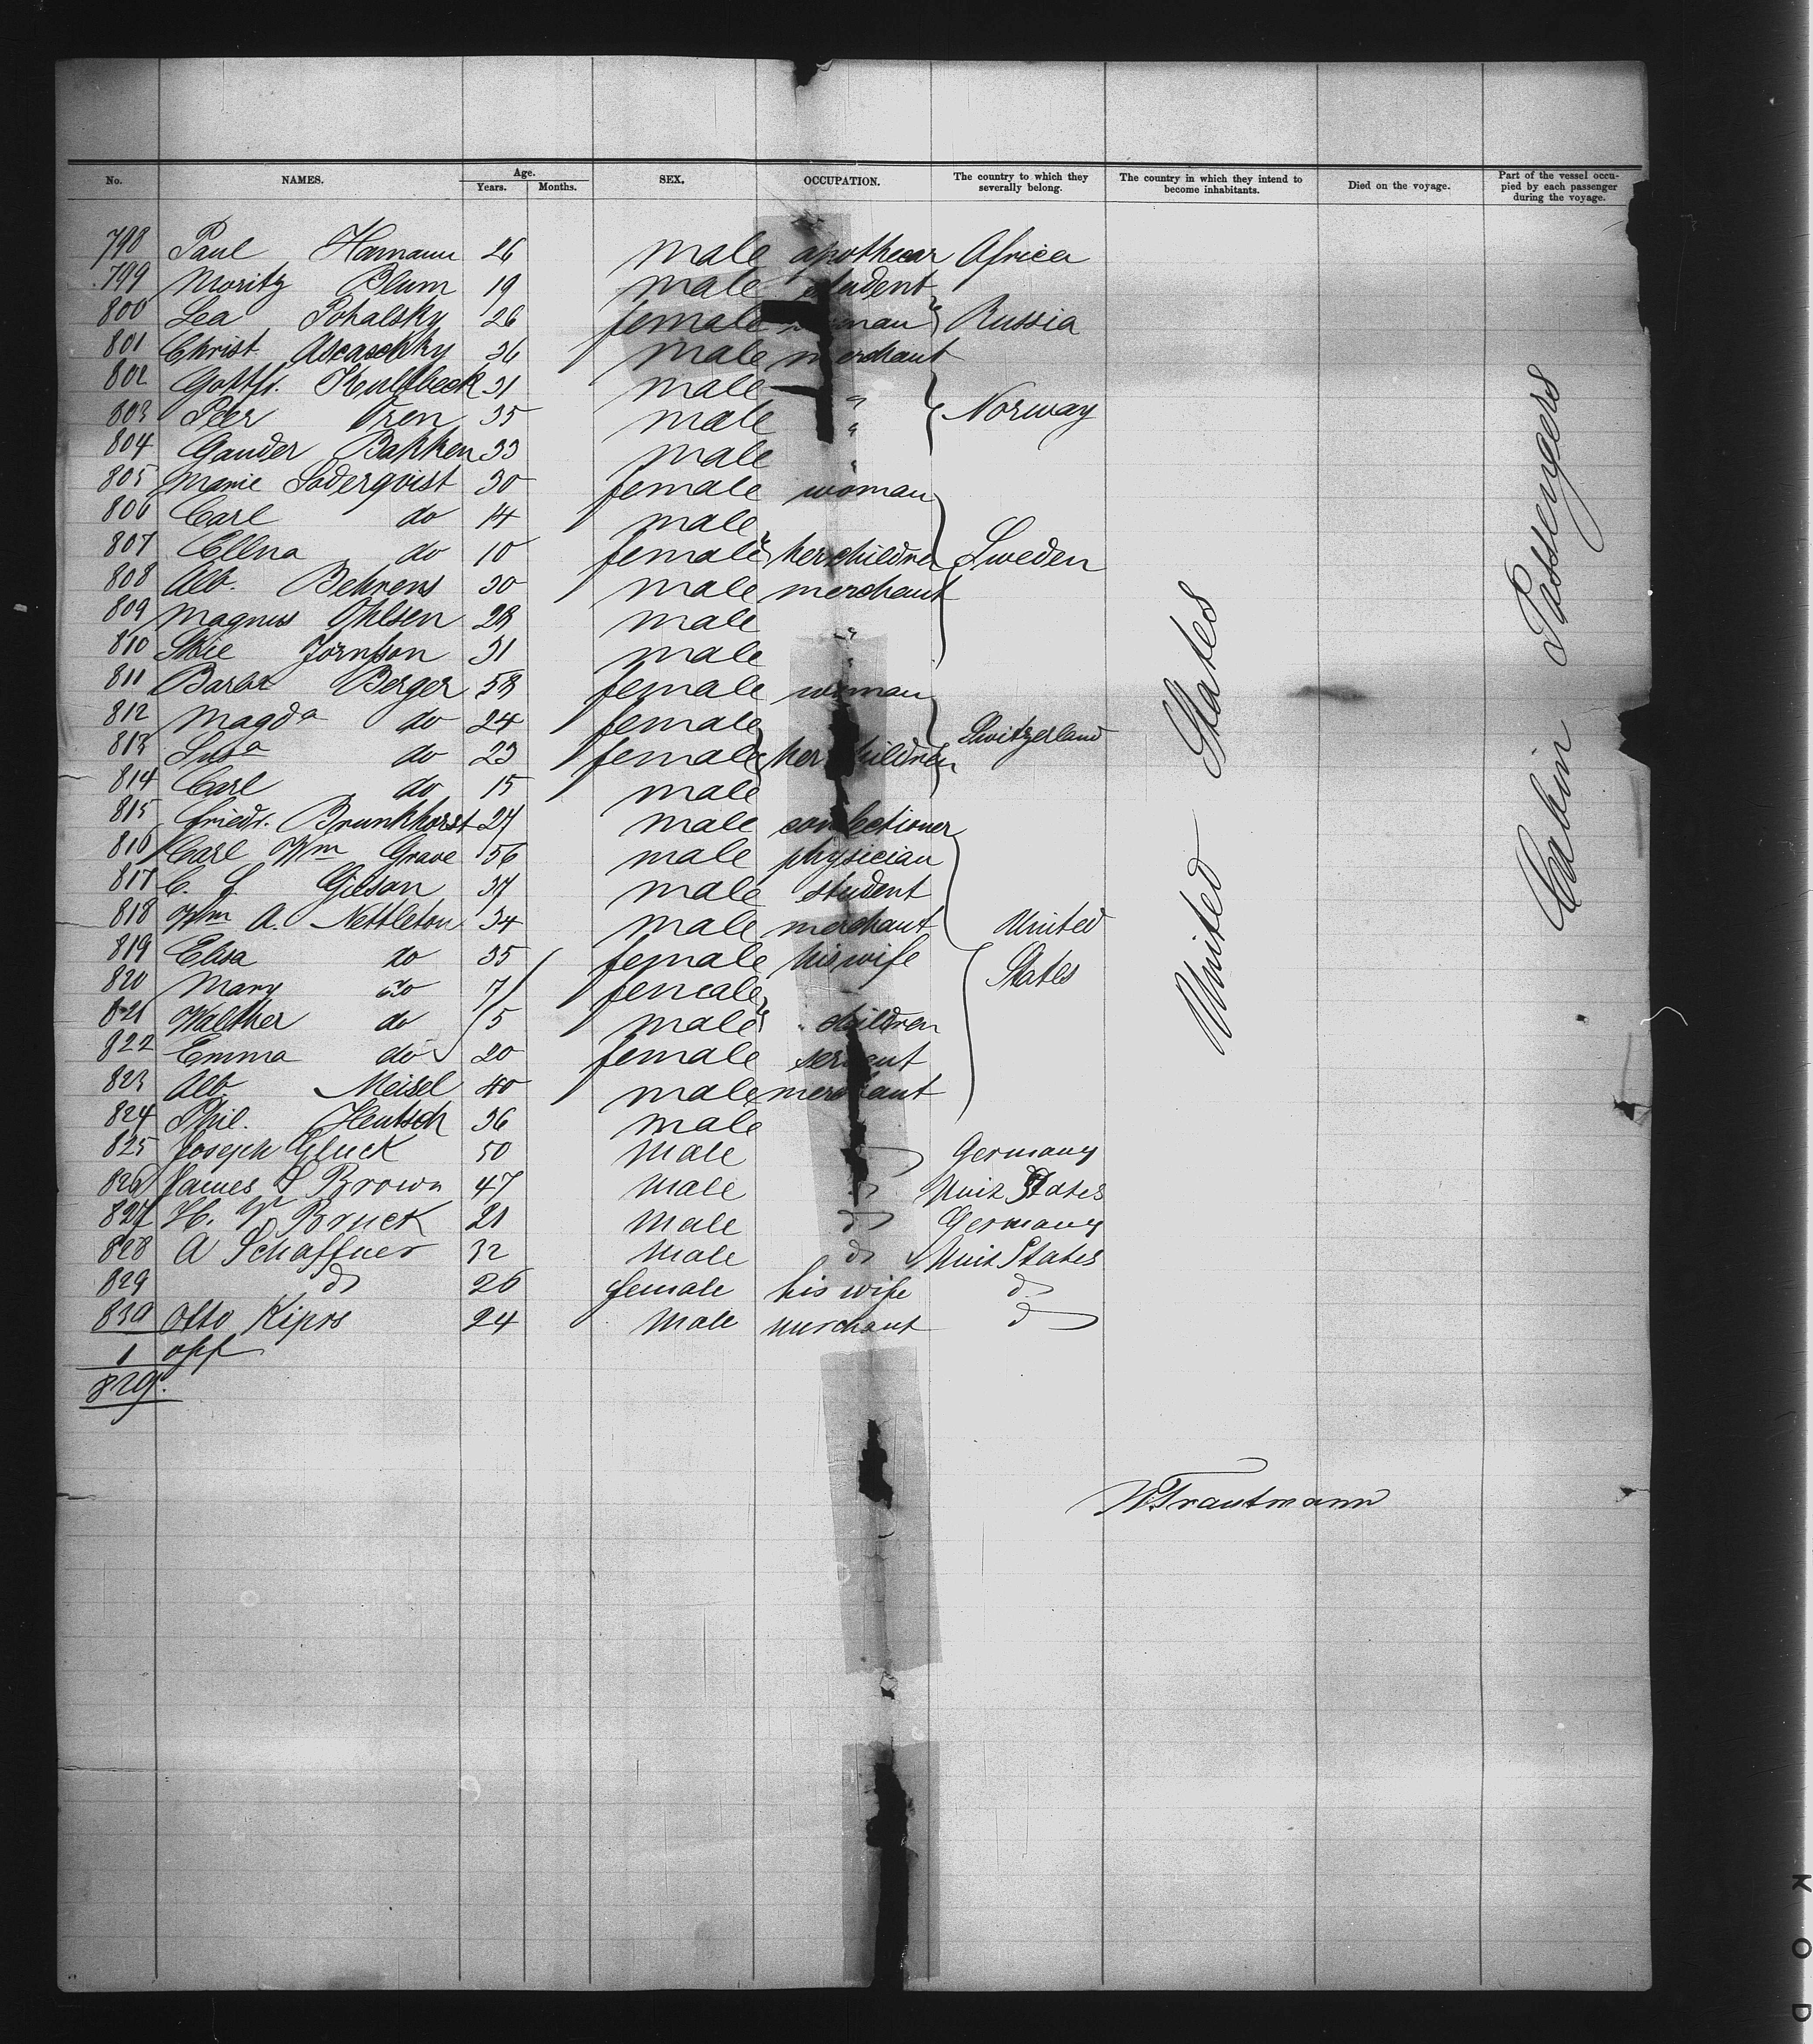 No. NAMES. Age. Years. Months. SEX. OCCUPATION. The country to which they severally belong. The country in which they intend to become inhabitants. Died on the voyage. Part of the vessel occupied by each passenger during the voyage.
798 Paul Hamann 26 male apothecar Africa
799 Moritz Blum 19 male student
800 Lea Pohalsky 26 female woman Russia
801 Christ Ascaschky 36 male merchant
802 Gottfr. Kultbeck 31 male "
803 Peer Tren 35 male " Norway
804 Gander Bakken 33 male "
805 Marie Soderqvist 30 female woman
806 Carl do 14 male
807 Ellna do 10 female her children Sweden
808 Alb. Behrens 30 male merchant
809 Magnus Ohlsen 28 male "
810 Skie Jornson 31 male "
811 Barbr Berger 58 female woman
812 Magda do 24 female Switzerland
813 Susa do 23 female her children
814 Carl do 15 male
815 Friedr. Brunkhorst 27 male confectioner
816 Carl Wm Grave 56 male physician
817 C. F. Gilson 37 male student
818 Wm A. Nettleton 34 male merchant United
819 Elisa do 35 female his wife States
820 Mary do 7 female
821 Walther do 5 male " children
822 Emma do 20 female servant
823 Alb Meisel 40 male merchant
824 Phil. Hentsch 36 male
825 Joseph Gluck 50 Male do Germany
826 James S Brown 47 Male do Unit States
827 H. W Bruck 21 Male do Germany
828 A Schaffner 32 Male do Unit States
829 do 26 female his wife do
830 Otto Kipps 24 Male merchant do
1 off
829.
United States
Cabin Passengers
W Trautmann
K O D